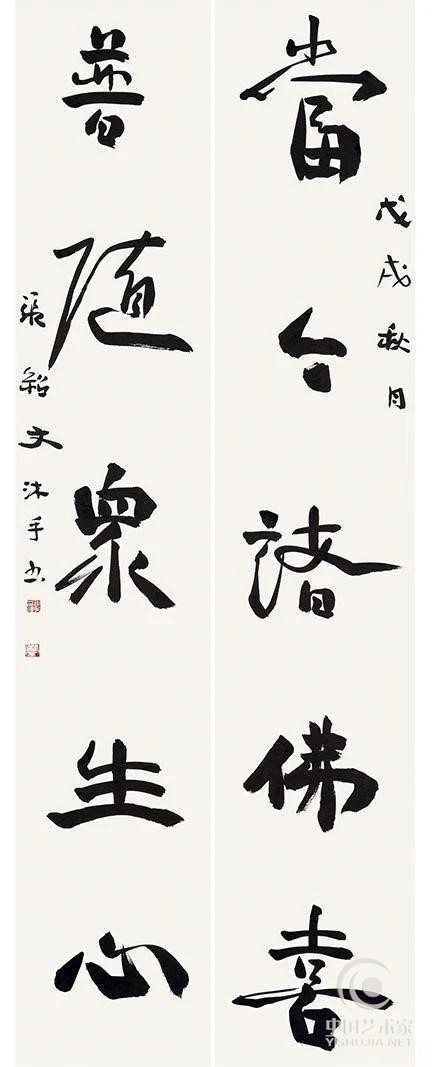 當令諸佛喜
戊戌秋月
普隨衆生心
張紹文沐手書
中国艺术家
YISHUJIA.NET